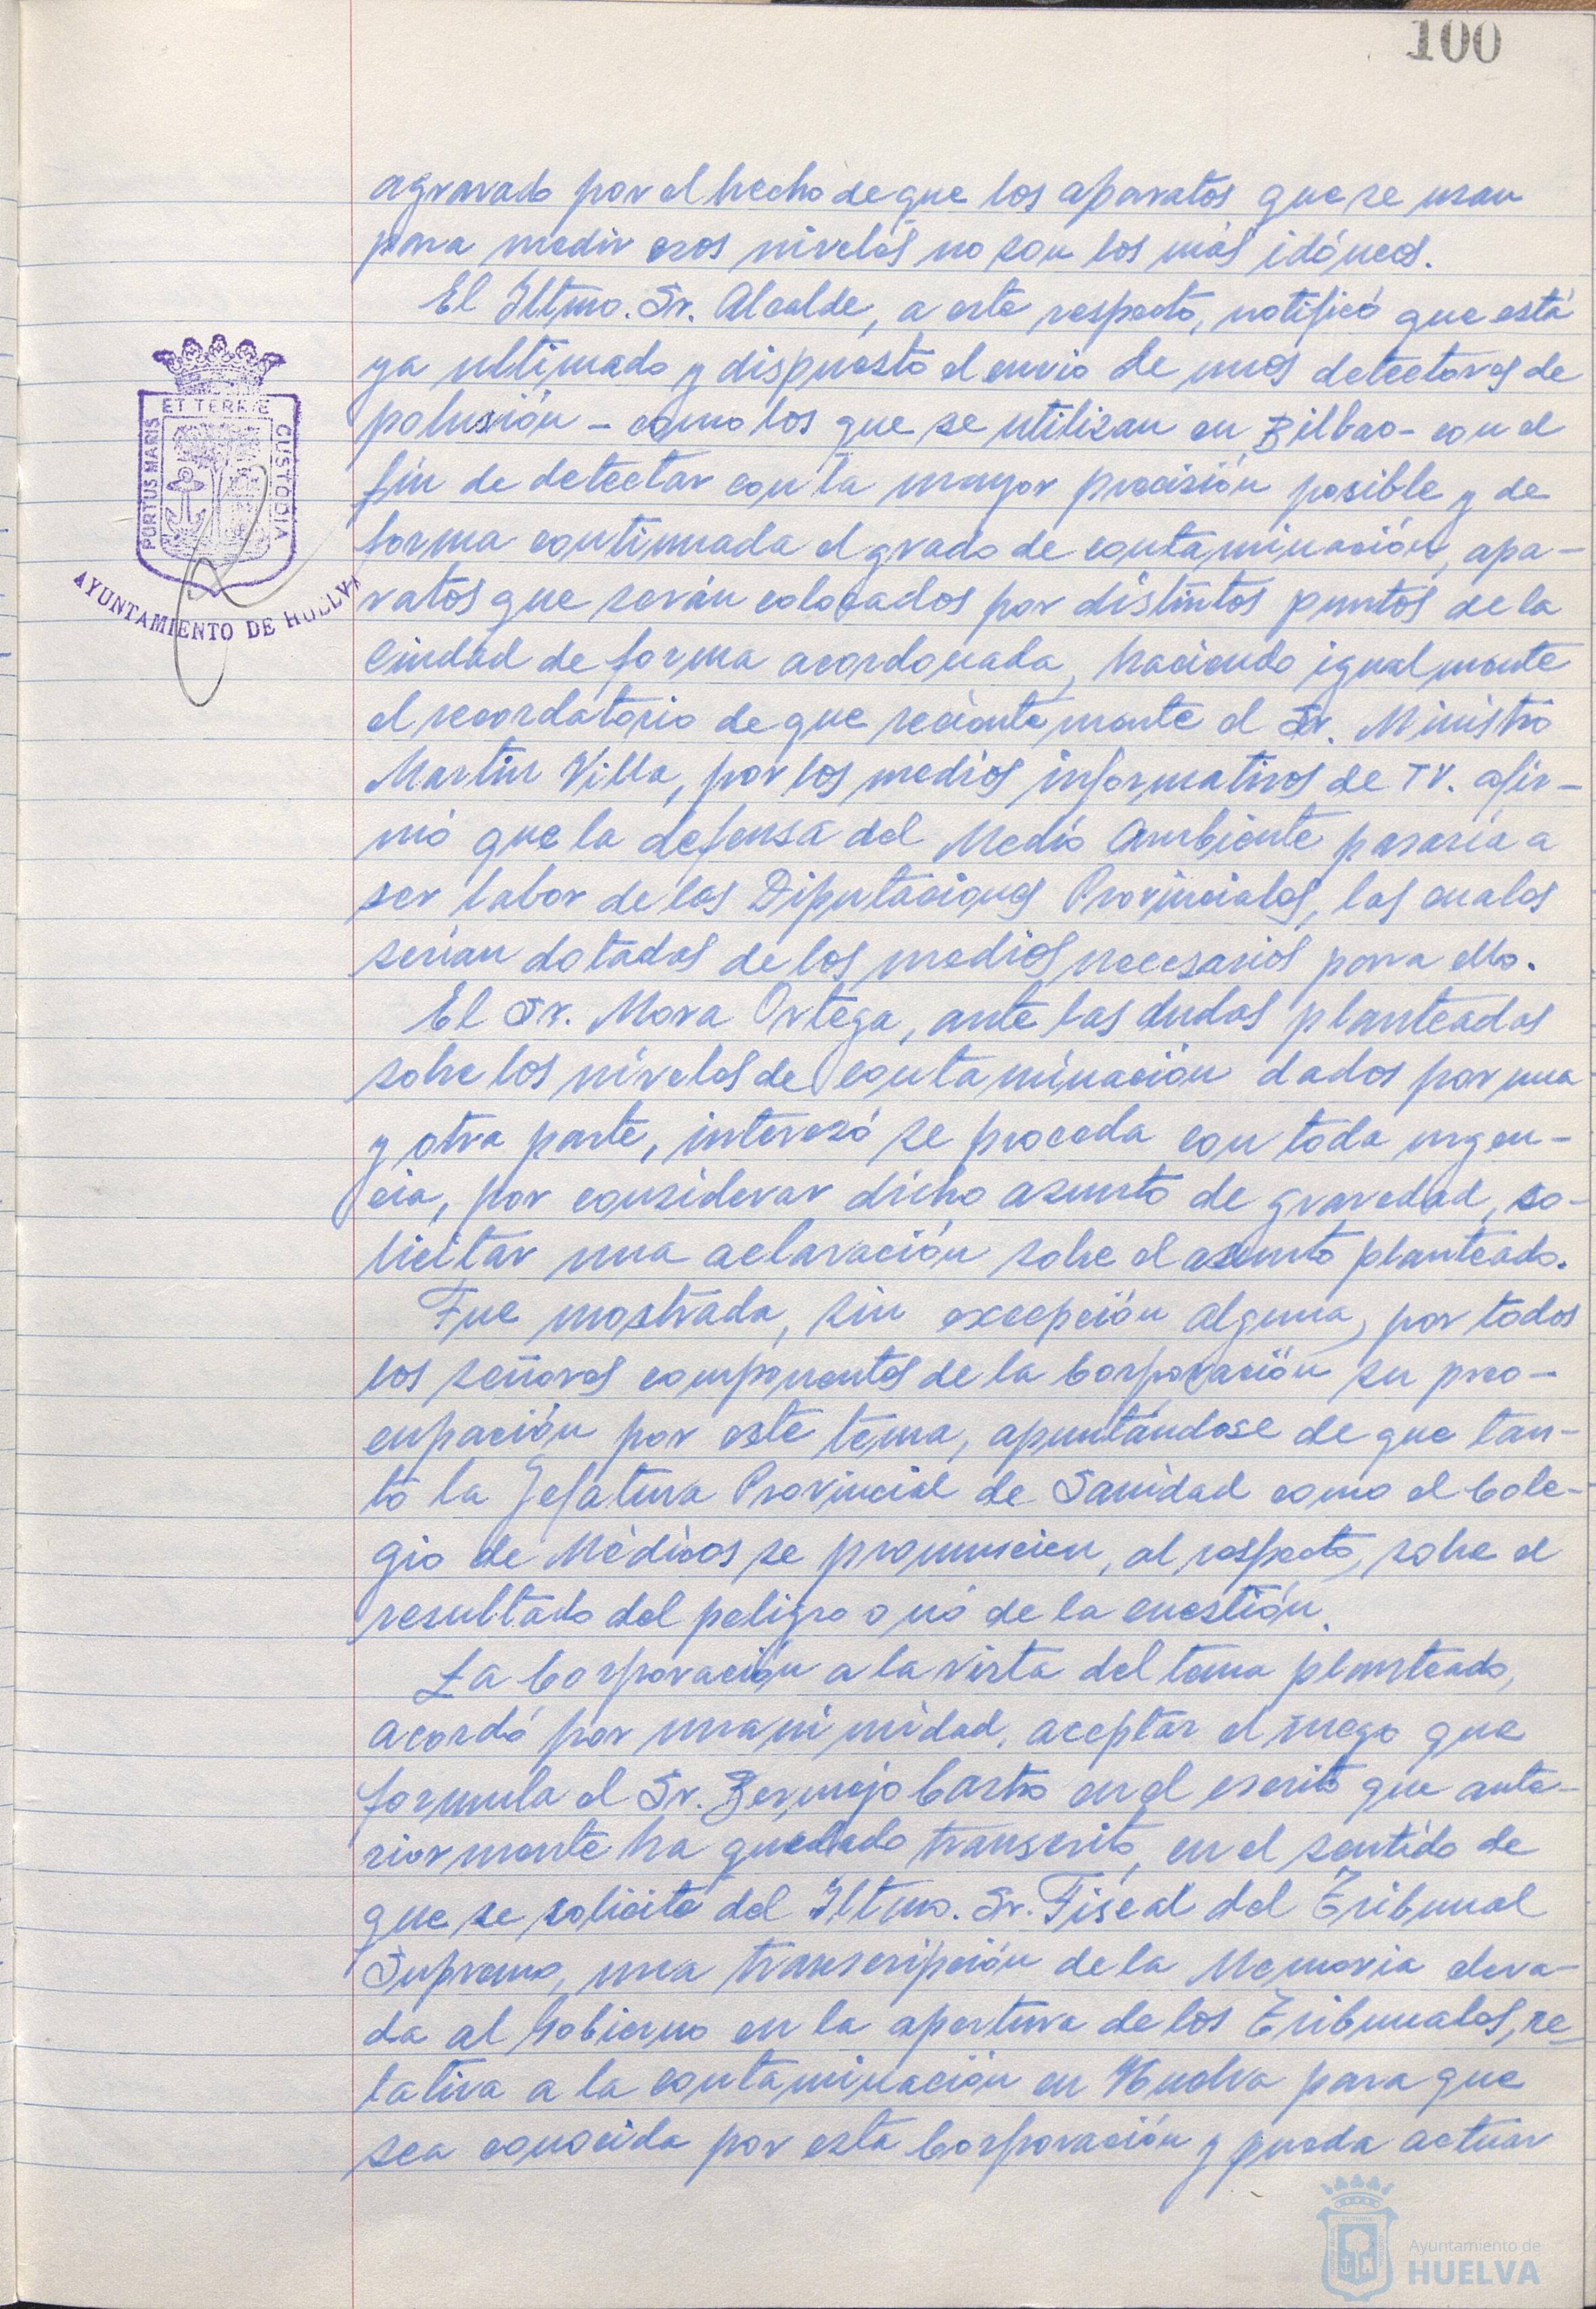 100
agravado por el hecho de que los aparatos que se usan
para medir esos niveles no son los más idóneos.
El Iltmo. Sr. Alcalde, a este respecto, notificó que está
ya ultimado y dispuesto el envio de unos detectores de
polusión - como los que se utilizan en Bilbao - con el
fin de detectar con la mayor precisión posible y de
forma continuada el grado de contaminación, apa-
ratos que serán colocados por distintos puntos de la
Ciudad de forma acordonada, haciendo igualmente
el recordatorio de que recientemente el Sr. Ministro
Martin Villa, por los medios informativos de TV. afir-
mó que la defensa del Medio Ambiente pasaría a
ser labor de las Diputaciones Provinciales, las cuales
serían dotadas de los medios necesarios para ello.
El Sr. Mora Ortega, ante las dudas planteadas
sobre los niveles de contaminación dados por una
y otra parte, interesó se proceda con toda urgen-
cia, por considerar dicho asunto de gravedad, so-
licitar una aclaración sobre el asunto planteado.
Fue mostrada, sin excepción alguna, por todos
los señores componentes de la Corporación su preo-
cupación por este tema, apuntándose de que tan-
to la Jefatura Provincial de Sanidad como el Cole-
gio de Médicos se pronuncien, al respecto, sobre el
resultado del peligro o nó de la cuestión.
La Corporación a la vista del tema planteado,
acordó por unanimidad, aceptar el ruego que
formula el Sr. Bermejo Castro en el escrito que ante-
riormente ha quedado transcrito, en el sentido de
que se solicite del Iltmo. Sr. Fiscal del Tribunal
Supremo, una transcripción de la Memoria eleva-
da al Gobierno en la apertura de los Tribunales, re-
lativa a la contaminación en Huelva para que
sea conocida por esta Corporación y pueda actuar
PORTUS MARIS
ET TERRE
CUSTODIA
AYUNTAMIENTO DE HUELVA
Ayuntamiento de
HUELVA